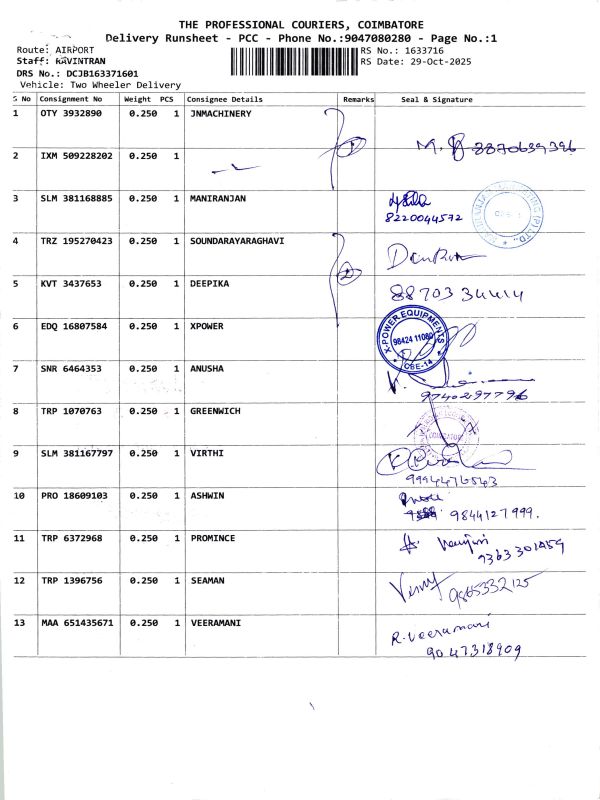 THE PROFESSIONAL COURIERS, COIMBATORE
Delivery Runsheet - PCC - Phone No.:9047080280 - Page No.:1
Route: AIRPORT RS No.: 1633716
Staff: KAVINTRAN RS Date: 29-Oct-2025
DRS No.: DCJB163371601
Vehicle: Two Wheeler Delivery
S No Consignment No Weight PCS Consignee Details Remarks Seal & Signature
1 OTY 3932890 0.250 1 JNMACHINERY
1 M. 8870639396
2 IXM 509228202 0.250 1
3 SLM 381168885 0.250 1 MANIRANJAN
8220044572
4 TRZ 195270423 0.250 1 SOUNDARAYARAGHAVI
2
5 KVT 3437653 0.250 1 DEEPIKA 88703 34414
6 EDQ 16807584 0.250 1 XPOWER X-POWER EQUIPMENTS 98424 11080 CBE-14
7 SNR 6464353 0.250 1 ANUSHA
9740297796
8 TRP 1070763 0.250 1 GREENWICH
9 SLM 381167797 0.250 1 VIRTHI
9994476543
10 PRO 18609103 0.250 1 ASHWIN
9844127999.
11 TRP 6372968 0.250 1 PROMINCE
9363301459
12 TRP 1396756 0.250 1 SEAMAN
9865332125
13 MAA 651435671 0.250 1 VEERAMANI R.Veeramani
9047318909